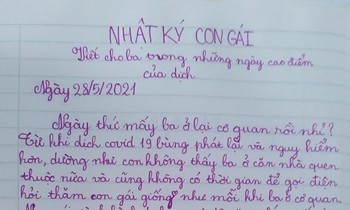 NHẬT KÝ CON GÁI
Viết cho ba trong những ngày cao điểm
của dịch
Ngày 28/5/2021
Ngày thứ mấy ba ở lại cơ quan rồi nhỉ?
Từ khi dịch covid 19 bùng phát lại và nguy hiểm
hơn, dường như con không thấy ba ở căn nhà quen
thuộc nữa và cũng không có thời gian để gọi điện
hỏi thăm con gái giống như mỗi khi ba ở cơ quan.